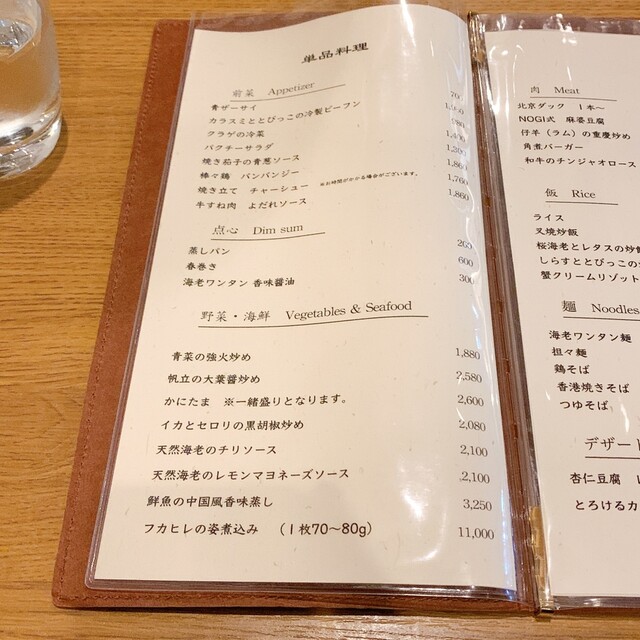 単品料理
前菜 Appetizer
青ザーサイ
カラスミととびっこの冷製ビーフン
クラゲの冷菜
パクチーサラダ 1,400
焼き茄子の青葱ソース
棒々鶏 バンバンジー 1,860
焼き立て チャーシュー ※お時間がかかる場合がございます。 1,760
牛すね肉 よだれソース 1,860
点心 Dim sum
蒸しパン 260
春巻き 600
海老ワンタン 香味醤油 300
野菜・海鮮 Vegetables & Seafood
青菜の強火炒め 1,880
帆立の大葉醤炒め 2,580
かにたま ※一緒盛りとなります。 2,600
イカとセロリの黒胡椒炒め 2,080
天然海老のチリソース 2,100
天然海老のレモンマヨネーズソース 2,100
鮮魚の中国風香味蒸し 3,250
フカヒレの姿煮込み （1枚70〜80g） 11,000
肉 Meat
北京ダック 1本〜
NOGI式 麻婆豆腐
仔羊（ラム）の重慶炒め
角煮バーガー
和牛のチンジャオロース
飯 Rice
ライス
叉焼炒飯
桜海老とレタスの炒飯
しらすととびっこの
蟹クリームリゾット
麺 Noodles
海老ワンタン麺
担々麺
鶏そば
香港焼きそば
つゆそば
デザート
杏仁豆腐
とろけるカ